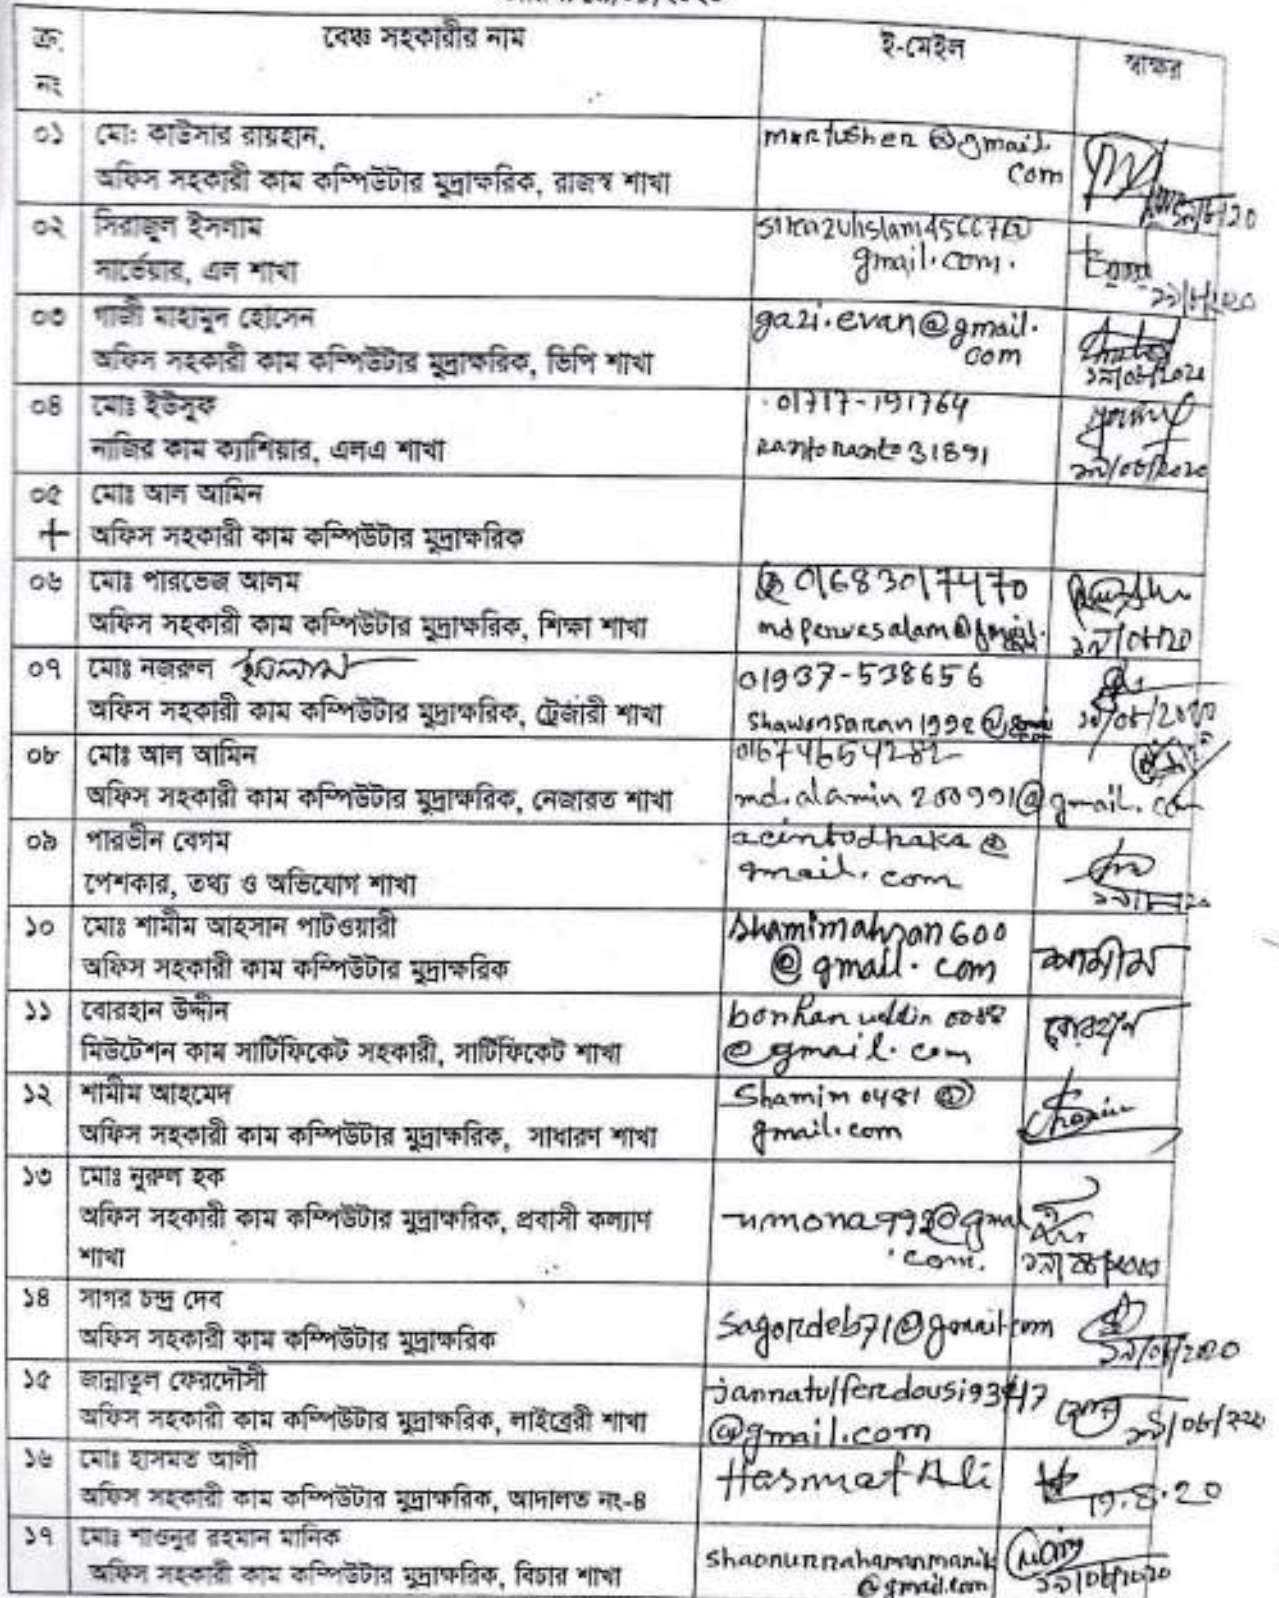 ক্র: নং
বেঞ্চ সহকারীর নাম
ই-মেইল
স্বাক্ষর
০১
মো: কাউসার রায়হান,
অফিস সহকারী কাম কম্পিউটার মুদ্রাক্ষরিক, রাজস্ব শাখা
@gmail.
com
০২
সিরাজুল ইসলাম
সার্ভেয়ার, এল শাখা
gmail.com.
০৩
গাজী মাহামুদ হোসেন
অফিস সহকারী কাম কম্পিউটার মুদ্রাক্ষরিক, ভিপি শাখা
gazi.evan@gmail.
com
১৯/০৮/২০২০
০৪
মোঃ ইউসুফ
নাজির কাম ক্যাশিয়ার, এলএ শাখা
01717-191764
১৯/০৮/২০২০
০৫
মোঃ আল আমিন
+ অফিস সহকারী কাম কম্পিউটার মুদ্রাক্ষরিক
০৬
মোঃ পারভেজ আলম
অফিস সহকারী কাম কম্পিউটার মুদ্রাক্ষরিক, শিক্ষা শাখা
01683017470
mdpervesalam@gmail.
০৭
মোঃ নজরুল ইসলাম
অফিস সহকারী কাম কম্পিউটার মুদ্রাক্ষরিক, ট্রেজারী শাখা
01937-538656
০৮
মোঃ আল আমিন
অফিস সহকারী কাম কম্পিউটার মুদ্রাক্ষরিক, নেজারত শাখা
01674654282
md.alamin200991@gmail.com
০৯
পারভীন বেগম
পেশকার, তথ্য ও অভিযোগ শাখা
acintodhaka@
gmail.com
১০
মোঃ শামীম আহসান পাটওয়ারী
অফিস সহকারী কাম কম্পিউটার মুদ্রাক্ষরিক
shamimahsan600
@gmail.com
শামীম
১১
বোরহান উদ্দীন
মিউটেশন কাম সার্টিফিকেট সহকারী, সার্টিফিকেট শাখা
@gmail.com
বোরহান
১২
শামীম আহমেদ
অফিস সহকারী কাম কম্পিউটার মুদ্রাক্ষরিক, সাধারণ শাখা
Shamim0481@
gmail.com
১৩
মোঃ নুরুল হক
অফিস সহকারী কাম কম্পিউটার মুদ্রাক্ষরিক, প্রবাসী কল্যাণ
শাখা
.com.
১৪
সাগর চন্দ্র দেব
অফিস সহকারী কাম কম্পিউটার মুদ্রাক্ষরিক
sagordeb71@gmail.com
১৯/০৮/২০২০
১৫
জান্নাতুল ফেরদৌসী
অফিস সহকারী কাম কম্পিউটার মুদ্রাক্ষরিক, লাইব্রেরী শাখা
@gmail.com
১৬
মোঃ হাসমত আলী
অফিস সহকারী কাম কম্পিউটার মুদ্রাক্ষরিক, আদালত নং-৪
Hasmat Ali
19.8.20
১৭
মোঃ শাওনুর রহমান মানিক
অফিস সহকারী কাম কম্পিউটার মুদ্রাক্ষরিক, বিচার শাখা
shaonurrahamanmanik
@gmail.com
১৯/০৮/২০২০